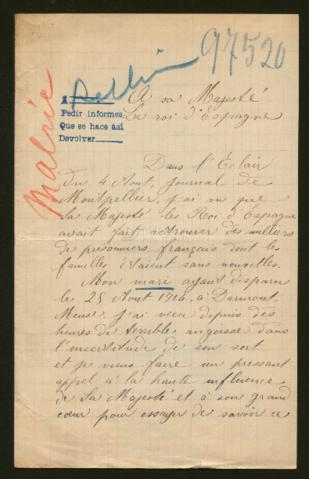 97520
Malvic
Berlin
A
Pedir informes
Que se hace así
Devolver
A sa Majesté
Le roi d'Espagne
Dans l'Eclair
du 4 Aout, journal de
Montpellier, j'ai vu que
Sa Majesté le Roi d'Espagne
avait fait retrouver des milliers
de prisonniers français dont les
familles étaient sans nouvelles.
Mon mari ayant disparu
le 25 Aout 1914, à
Meuse, j'ai vécu depuis des
heures de terrible angoisse dans
l'incertitude de son sort
et je viens faire un pressant
appel à la haute influence
de Sa Majesté et à son grand
cœur pour essayer de savoir ce